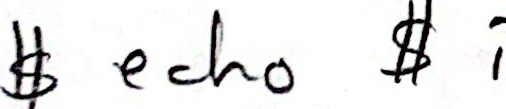 $ echo $i